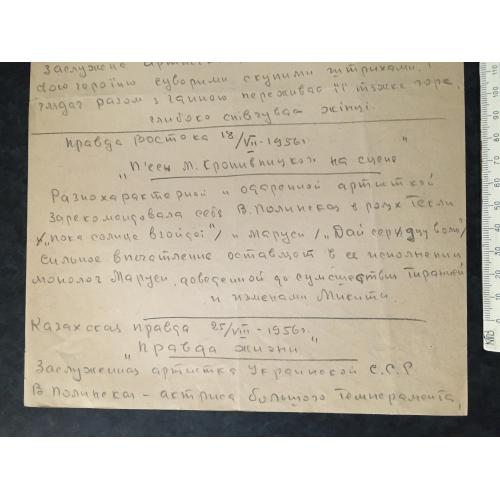 заслужена артистка
свою героїню суворими, скупими штрихами, і
глядач разом з Ганною переживає її тяжке горе,
глибоко співчуває жінці.
Правда Востока 18/VII-1956г.
"П'есы М. Кропивницкого на сцене"
Разнохарактерной и одаренной артисткой
зарекомендовала себя В. Полинская в ролях Текли
/"пока солнце взойдет"/ и Маруси /"Дай серцу волю"/
сильное впечатление оставляет в ее исполнении
монолог Маруси, доведенной до сумасшествия тиранией
и изменами Микити.
Казахская правда 25/VIII-1956г.
"Правда жизни"
Заслуженная артистка Украинской С.С.Р
В Полинская - актриса большого темперамента,